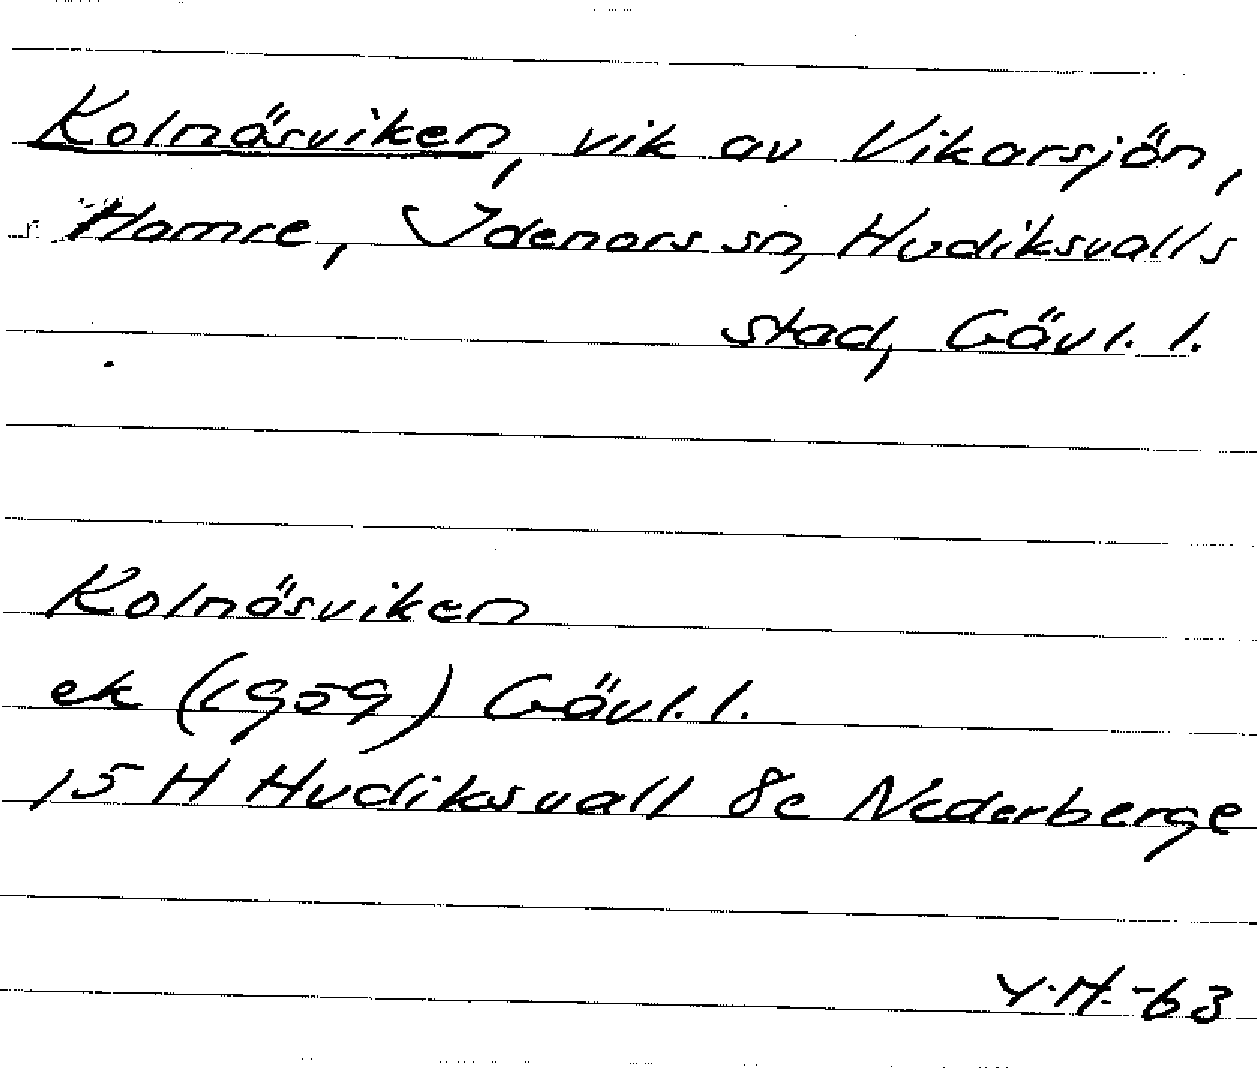 Kolnäsviken, vik av Vikarsjön,
Hamre, Idenors sn, Hudiksvalls
stad, Gävl. l.
Kolnäsviken
ek (1959) Gävl. l.
15 H Hudiksvall 8c Nederberge
Y.H.-63